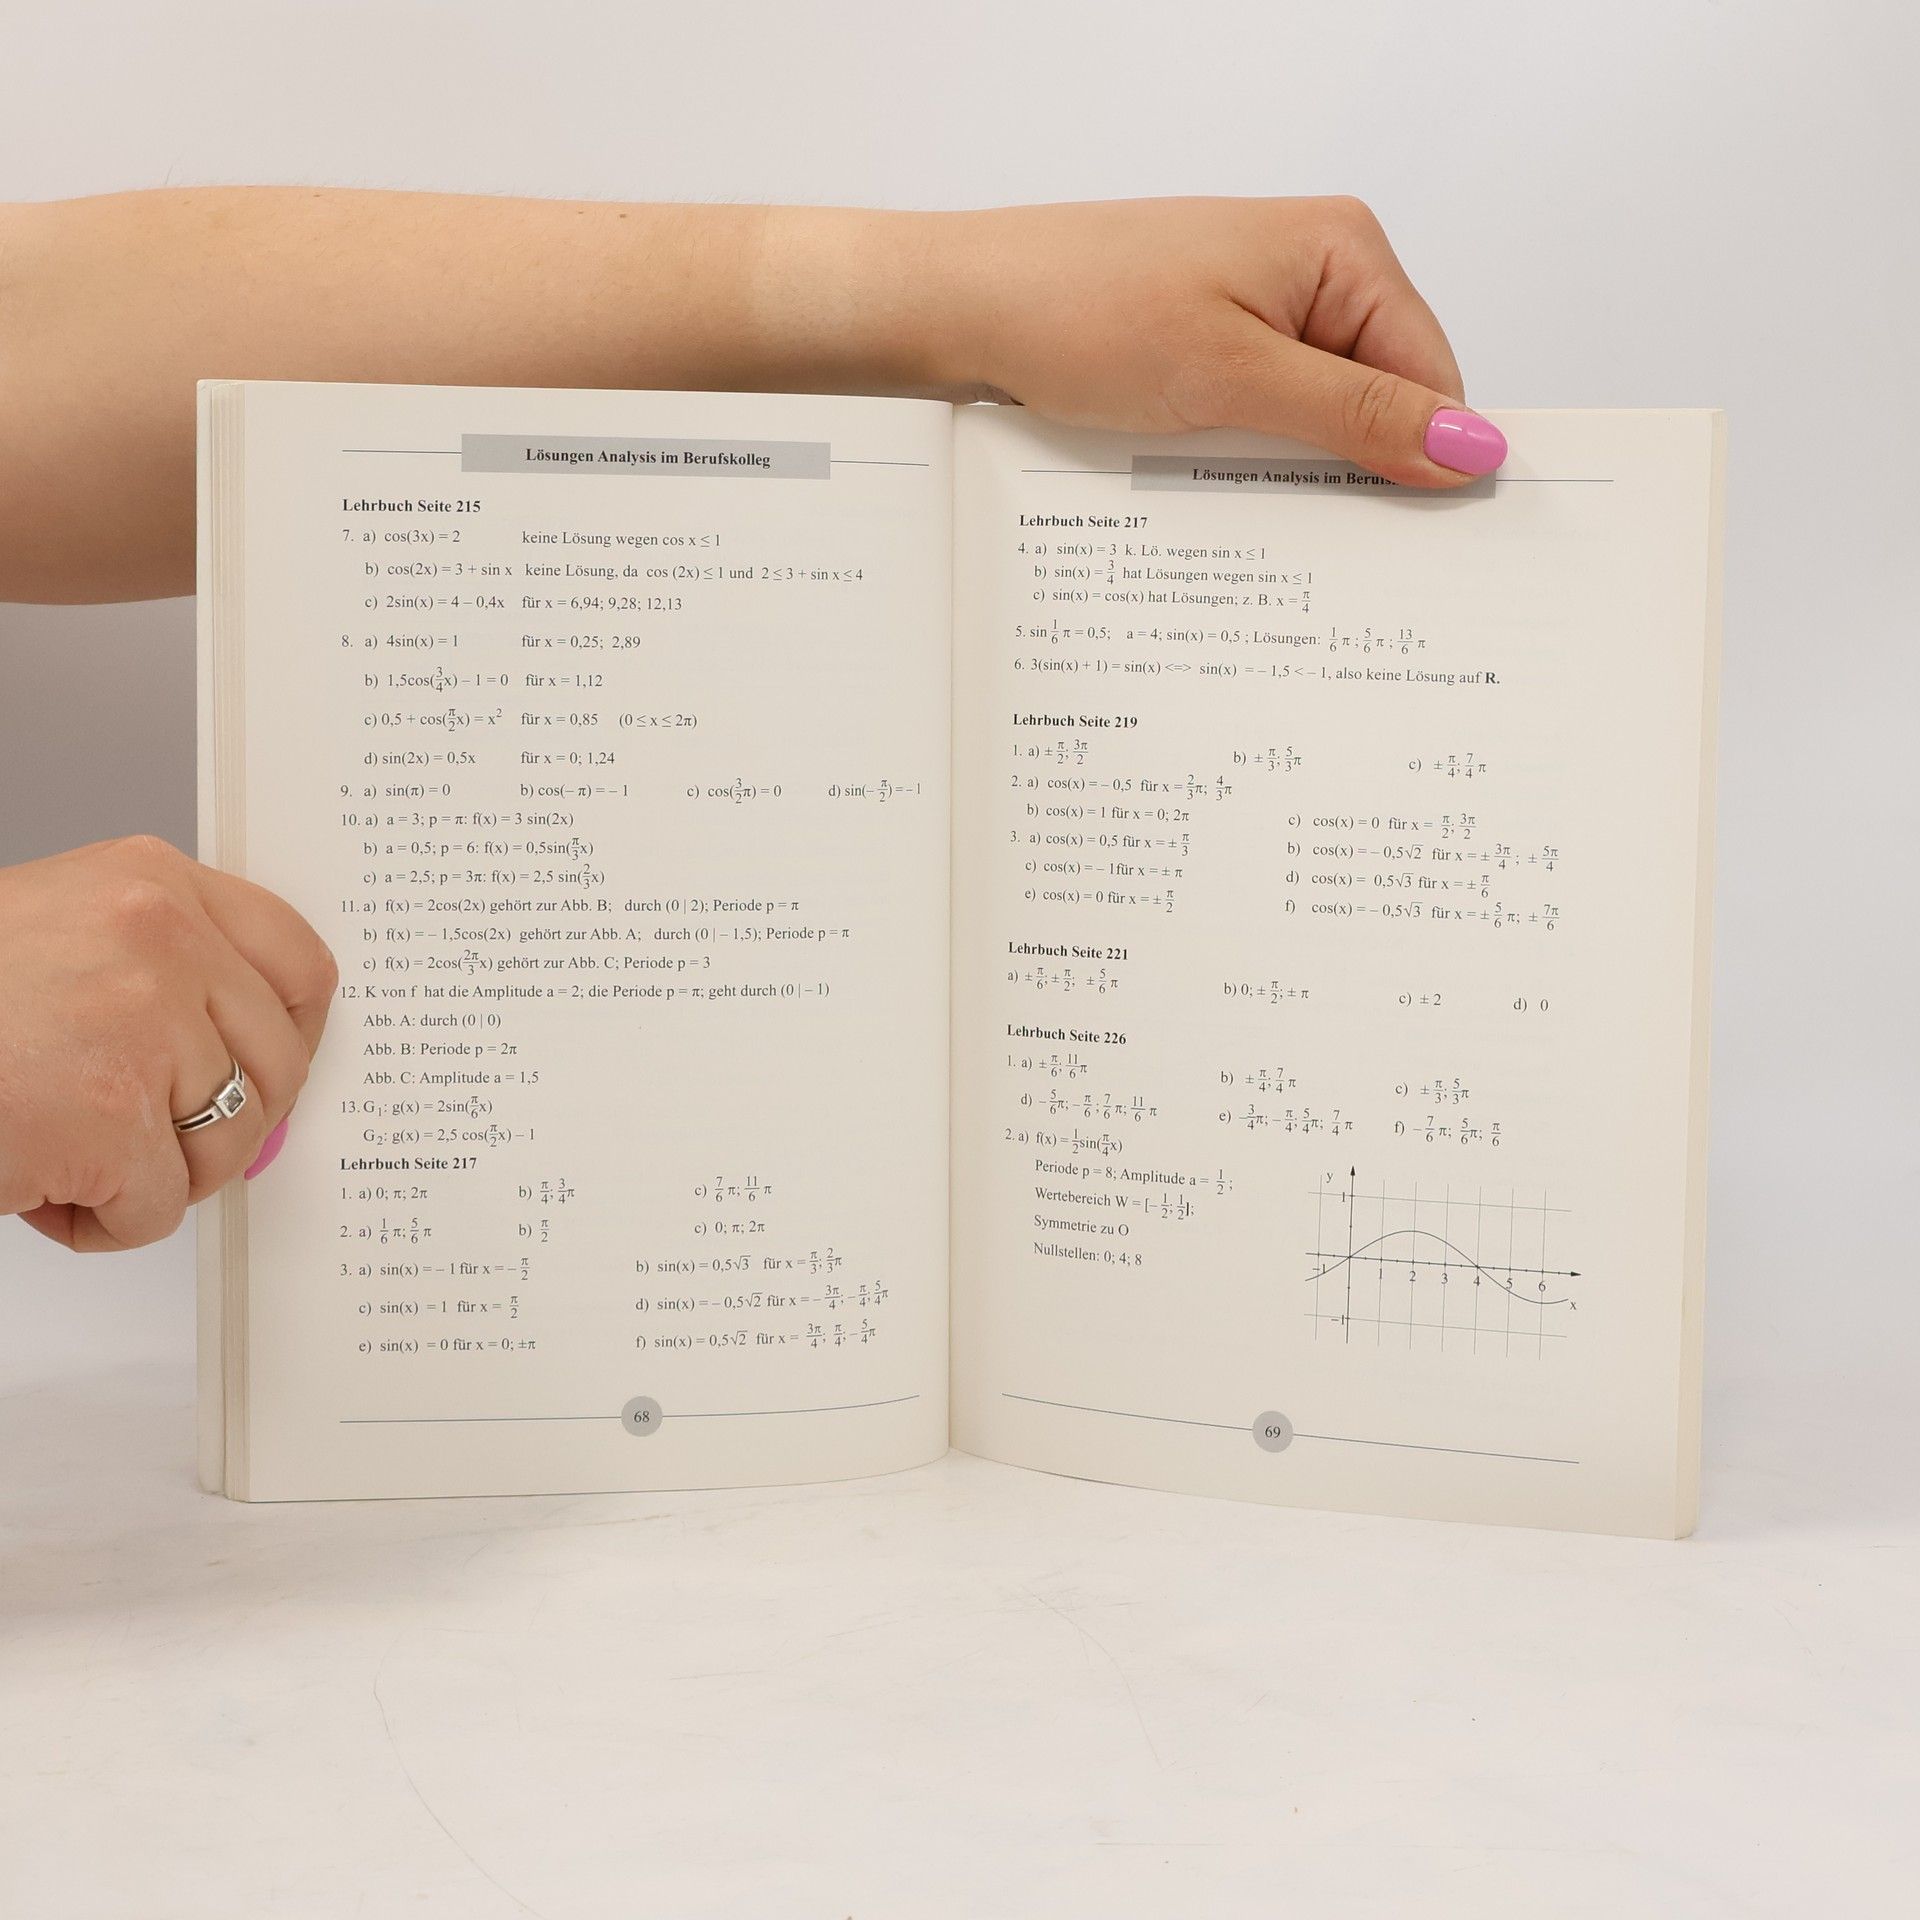 Lösungen Analysis im Berufskolleg
Lehrbuch Seite 215
7. a) cos(3x) = 2 keine Lösung wegen cos x ≤ 1
b) cos(2x) = 3 + sin x keine Lösung, da cos (2x) ≤ 1 und 2 ≤ 3 + sin x ≤ 4
c) 2sin(x) = 4 – 0,4x für x = 6,94; 9,28; 12,13
8. a) 4sin(x) = 1 für x = 0,25; 2,89
b) 1,5cos(3/4x) – 1 = 0 für x = 1,12
c) 0,5 + cos(π/2x) = x² für x = 0,85 (0 ≤ x ≤ 2π)
d) sin(2x) = 0,5x für x = 0; 1,24
9. a) sin(π) = 0 b) cos(– π) = – 1 c) cos(3/2π) = 0 d) sin(–π/2) = – 1
10. a) a = 3; p = π: f(x) = 3 sin(2x)
b) a = 0,5; p = 6: f(x) = 0,5sin(π/3x)
c) a = 2,5; p = 3π: f(x) = 2,5 sin(2/3x)
11. a) f(x) = 2cos(2x) gehört zur Abb. B; durch (0 | 2); Periode p = π
b) f(x) = – 1,5cos(2x) gehört zur Abb. A; durch (0 | – 1,5); Periode p = π
c) f(x) = 2cos(2π/3x) gehört zur Abb. C; Periode p = 3
12. K von f hat die Amplitude a = 2; die Periode p = π; geht durch (0 | – 1)
Abb. A: durch (0 | 0)
Abb. B: Periode p = 2π
Abb. C: Amplitude a = 1,5
13. G₁: g(x) = 2sin(π/6x)
G₂: g(x) = 2,5 cos(π/2x) – 1
Lehrbuch Seite 217
1. a) 0; π; 2π b) π/4; 3/4π c) 7/6 π; 11/6 π
2. a) 1/6 π; 5/6 π b) π/2 c) 0; π; 2π
3. a) sin(x) = – 1 für x = – π/2 b) sin(x) = 0,5√3 für x = π/3; 2/3π
c) sin(x) = 1 für x = π/2 d) sin(x) = – 0,5√2 für x = – 3π/4; – π/4; 5/4π
e) sin(x) = 0 für x = 0; ±π f) sin(x) = 0,5√2 für x = 3π/4; π/4; – 5/4π
68
Lösungen Analysis im
Lehrbuch Seite 217
4. a) sin(x) = 3 k. Lö. wegen sin x ≤ 1
b) sin(x) = 3/4 hat Lösungen wegen sin x ≤ 1
c) sin(x) = cos(x) hat Lösungen; z. B. x = π/4
5. sin 1/6 π = 0,5; a = 4; sin(x) = 0,5 ; Lösungen: 1/6 π ; 5/6 π ; 13/6 π
6. 3(sin(x) + 1) = sin(x) <=> sin(x) = – 1,5 < – 1, also keine Lösung auf R.
Lehrbuch Seite 219
1. a) ± π/2; 3π/2 b) ± π/3; 5/3π c) ± π/4; 7/4 π
2. a) cos(x) = – 0,5 für x = 2/3π; 4/3π
b) cos(x) = 1 für x = 0; 2π c) cos(x) = 0 für x = π/2; 3π/2
3. a) cos(x) = 0,5 für x = ± π/3 b) cos(x) = – 0,5√2 für x = ± 3π/4 ; ± 5π/4
c) cos(x) = – 1für x = ± π d) cos(x) = 0,5√3 für x = ± π/6
e) cos(x) = 0 für x = ± π/2 f) cos(x) = – 0,5√3 für x = ± 5/6 π; ± 7π/6
Lehrbuch Seite 221
a) ± π/6; ± π/2; ± 5/6 π b) 0; ± π/2; ± π c) ± 2 d) 0
Lehrbuch Seite 226
1. a) ± π/6; 11/6 π b) ± π/4; 7/4 π c) ± π/3; 5/3π
d) – 5/6π; – π/6 ; 7/6 π; 11/6 π e) –3/4π; – π/4; 5/4π; 7/4 π f) – 7/6 π; 5/6π; π/6
2. a) f(x) = 1/2sin(π/4x)
Periode p = 8; Amplitude a = 1/2 ;
Wertebereich W = [– 1/2; 1/2];
Symmetrie zu O
Nullstellen: 0; 4; 8
y
1
–1 1 2 3 4 5 6
x
–1
69